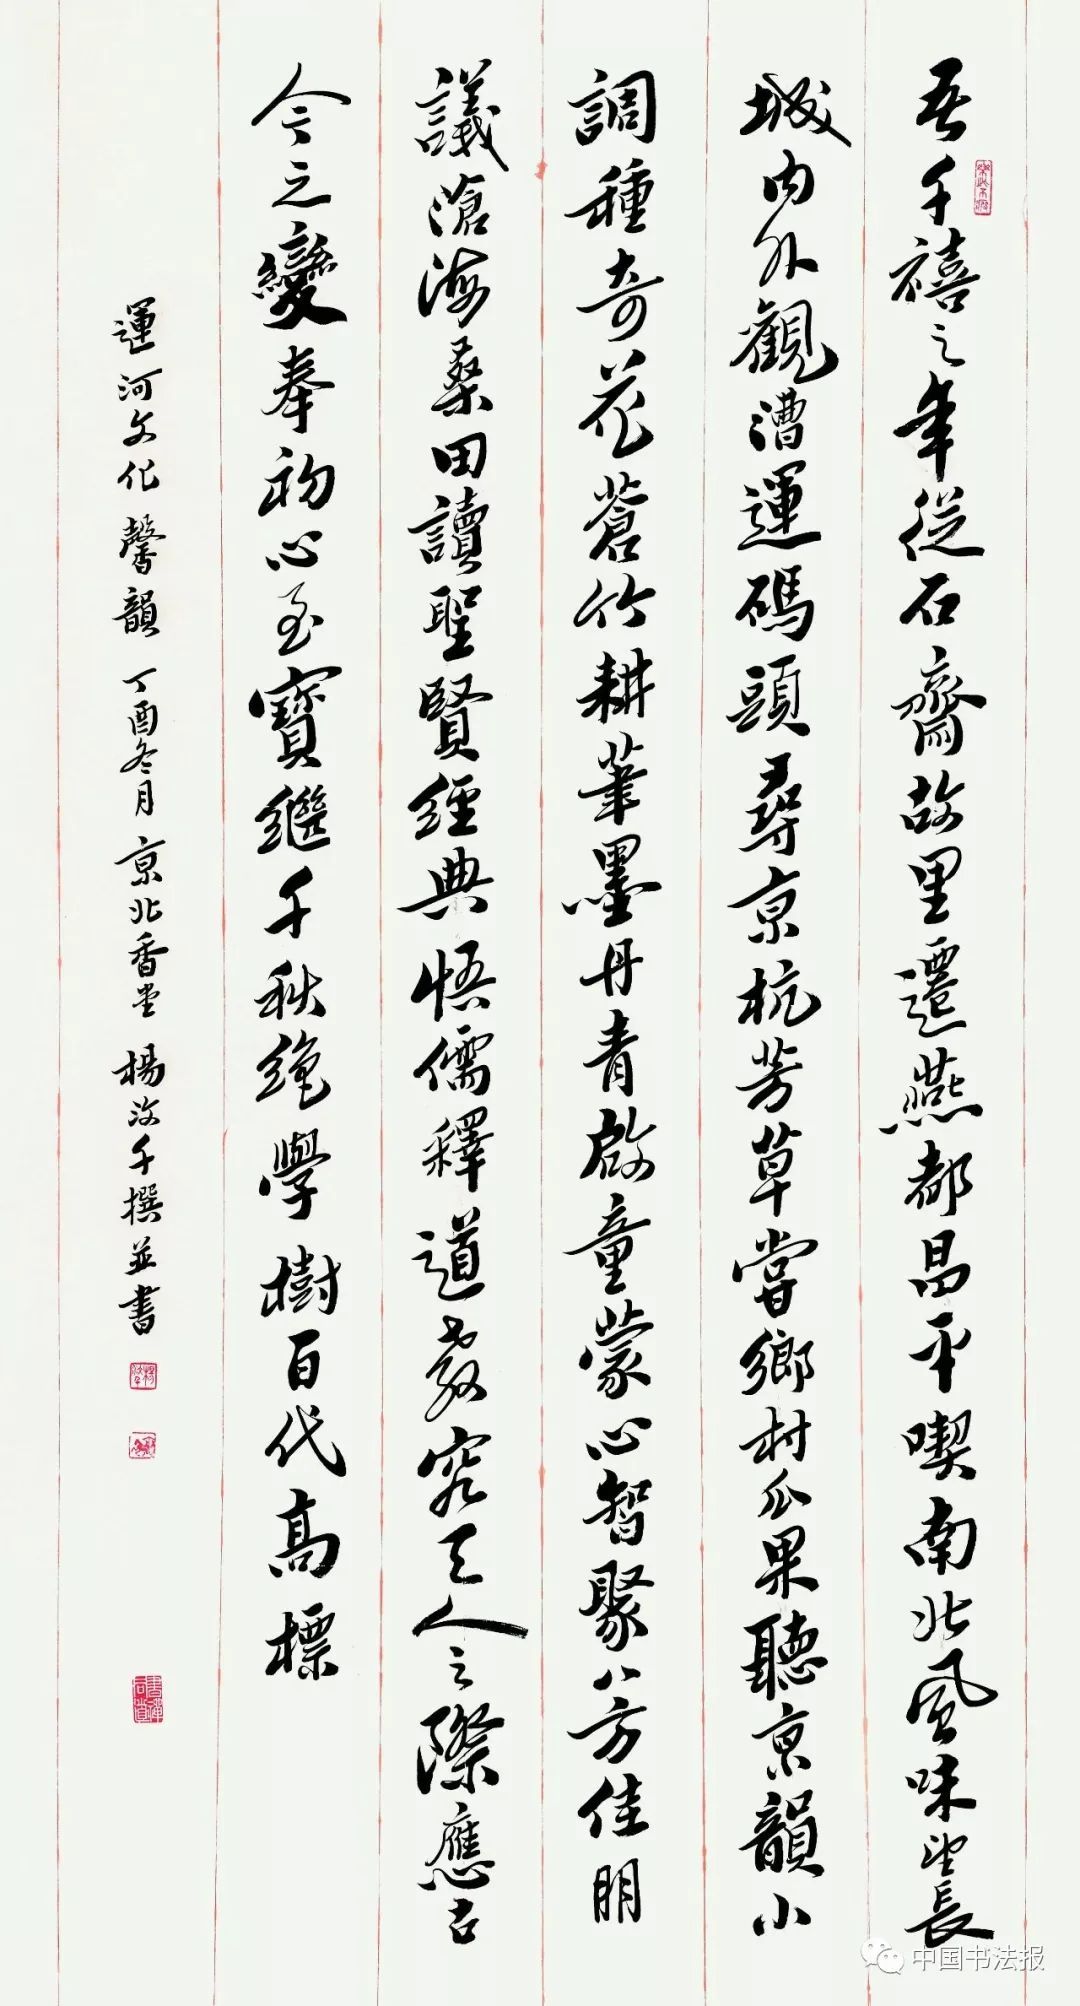 吾千禧之年從石齋故里遷燕都昌平喫南北風味望長
城内外觀漕運碼頭尋京杭芳草嘗鄉村瓜果聽京韻小
調種奇花蒼竹耕筆墨丹青啟童蒙心智聚八方佳朋
議滄海桑田讀聖賢經典悟儒釋道教究天人之際應古
今之變奉初心至寶繼千秋絶學樹百代高標
運河文化馨韻 丁酉冬月 京北香堂 楊汝千撰並書
中国书法报